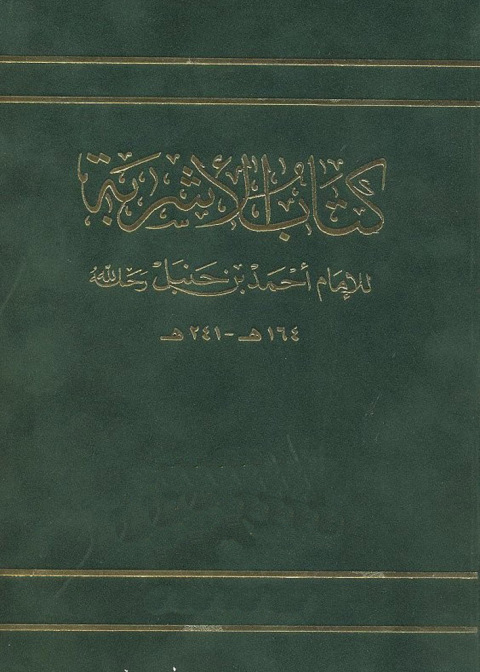 كتاب الأشربة
للإمام أحمد بن حنبل رحمه الله
١٦٤ هـ - ٢٤١ هـ